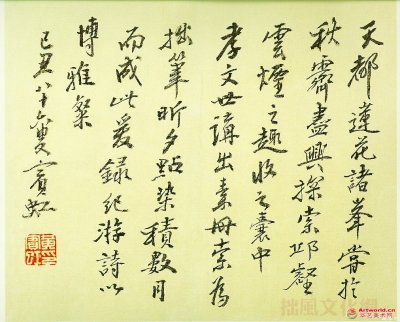 天都蓮花諸峯嘗於
秋霽盡興探索邱壑
雲煙之趣收之囊中
孝文世講出素冊索為
拙筆昕夕點染積數月
而成此爰錄紀游詩以
博雅粲
己丑八十六叟賓虹
拙風文化網
Artworld.cn
华艺美术网